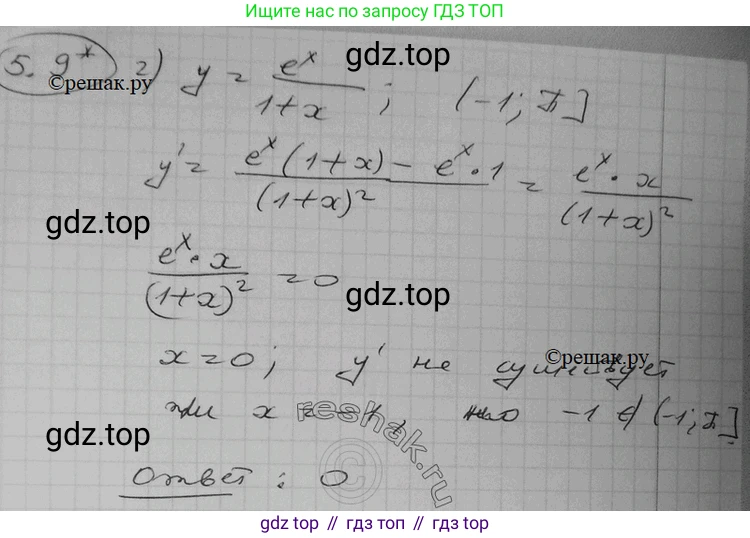 Ищите нас по запросу ГДЗ ТОП
gdz.top
5.9* г) y = e^x / (1+x) ; (-1; π]
©решак.ру
y' = (e^x (1+x) - e^x · 1) / (1+x)^2 = (e^x · x) / (1+x)^2
gdz.top
(e^x · x) / (1+x)^2 = 0
gdz.top
x = 0; y' не существует
©решак.ру
при x = -1, но -1 ∉ (-1; π]
reshak.ru
gdz.top
Ответ : 0
gdz.top // гдз топ // gdz.top